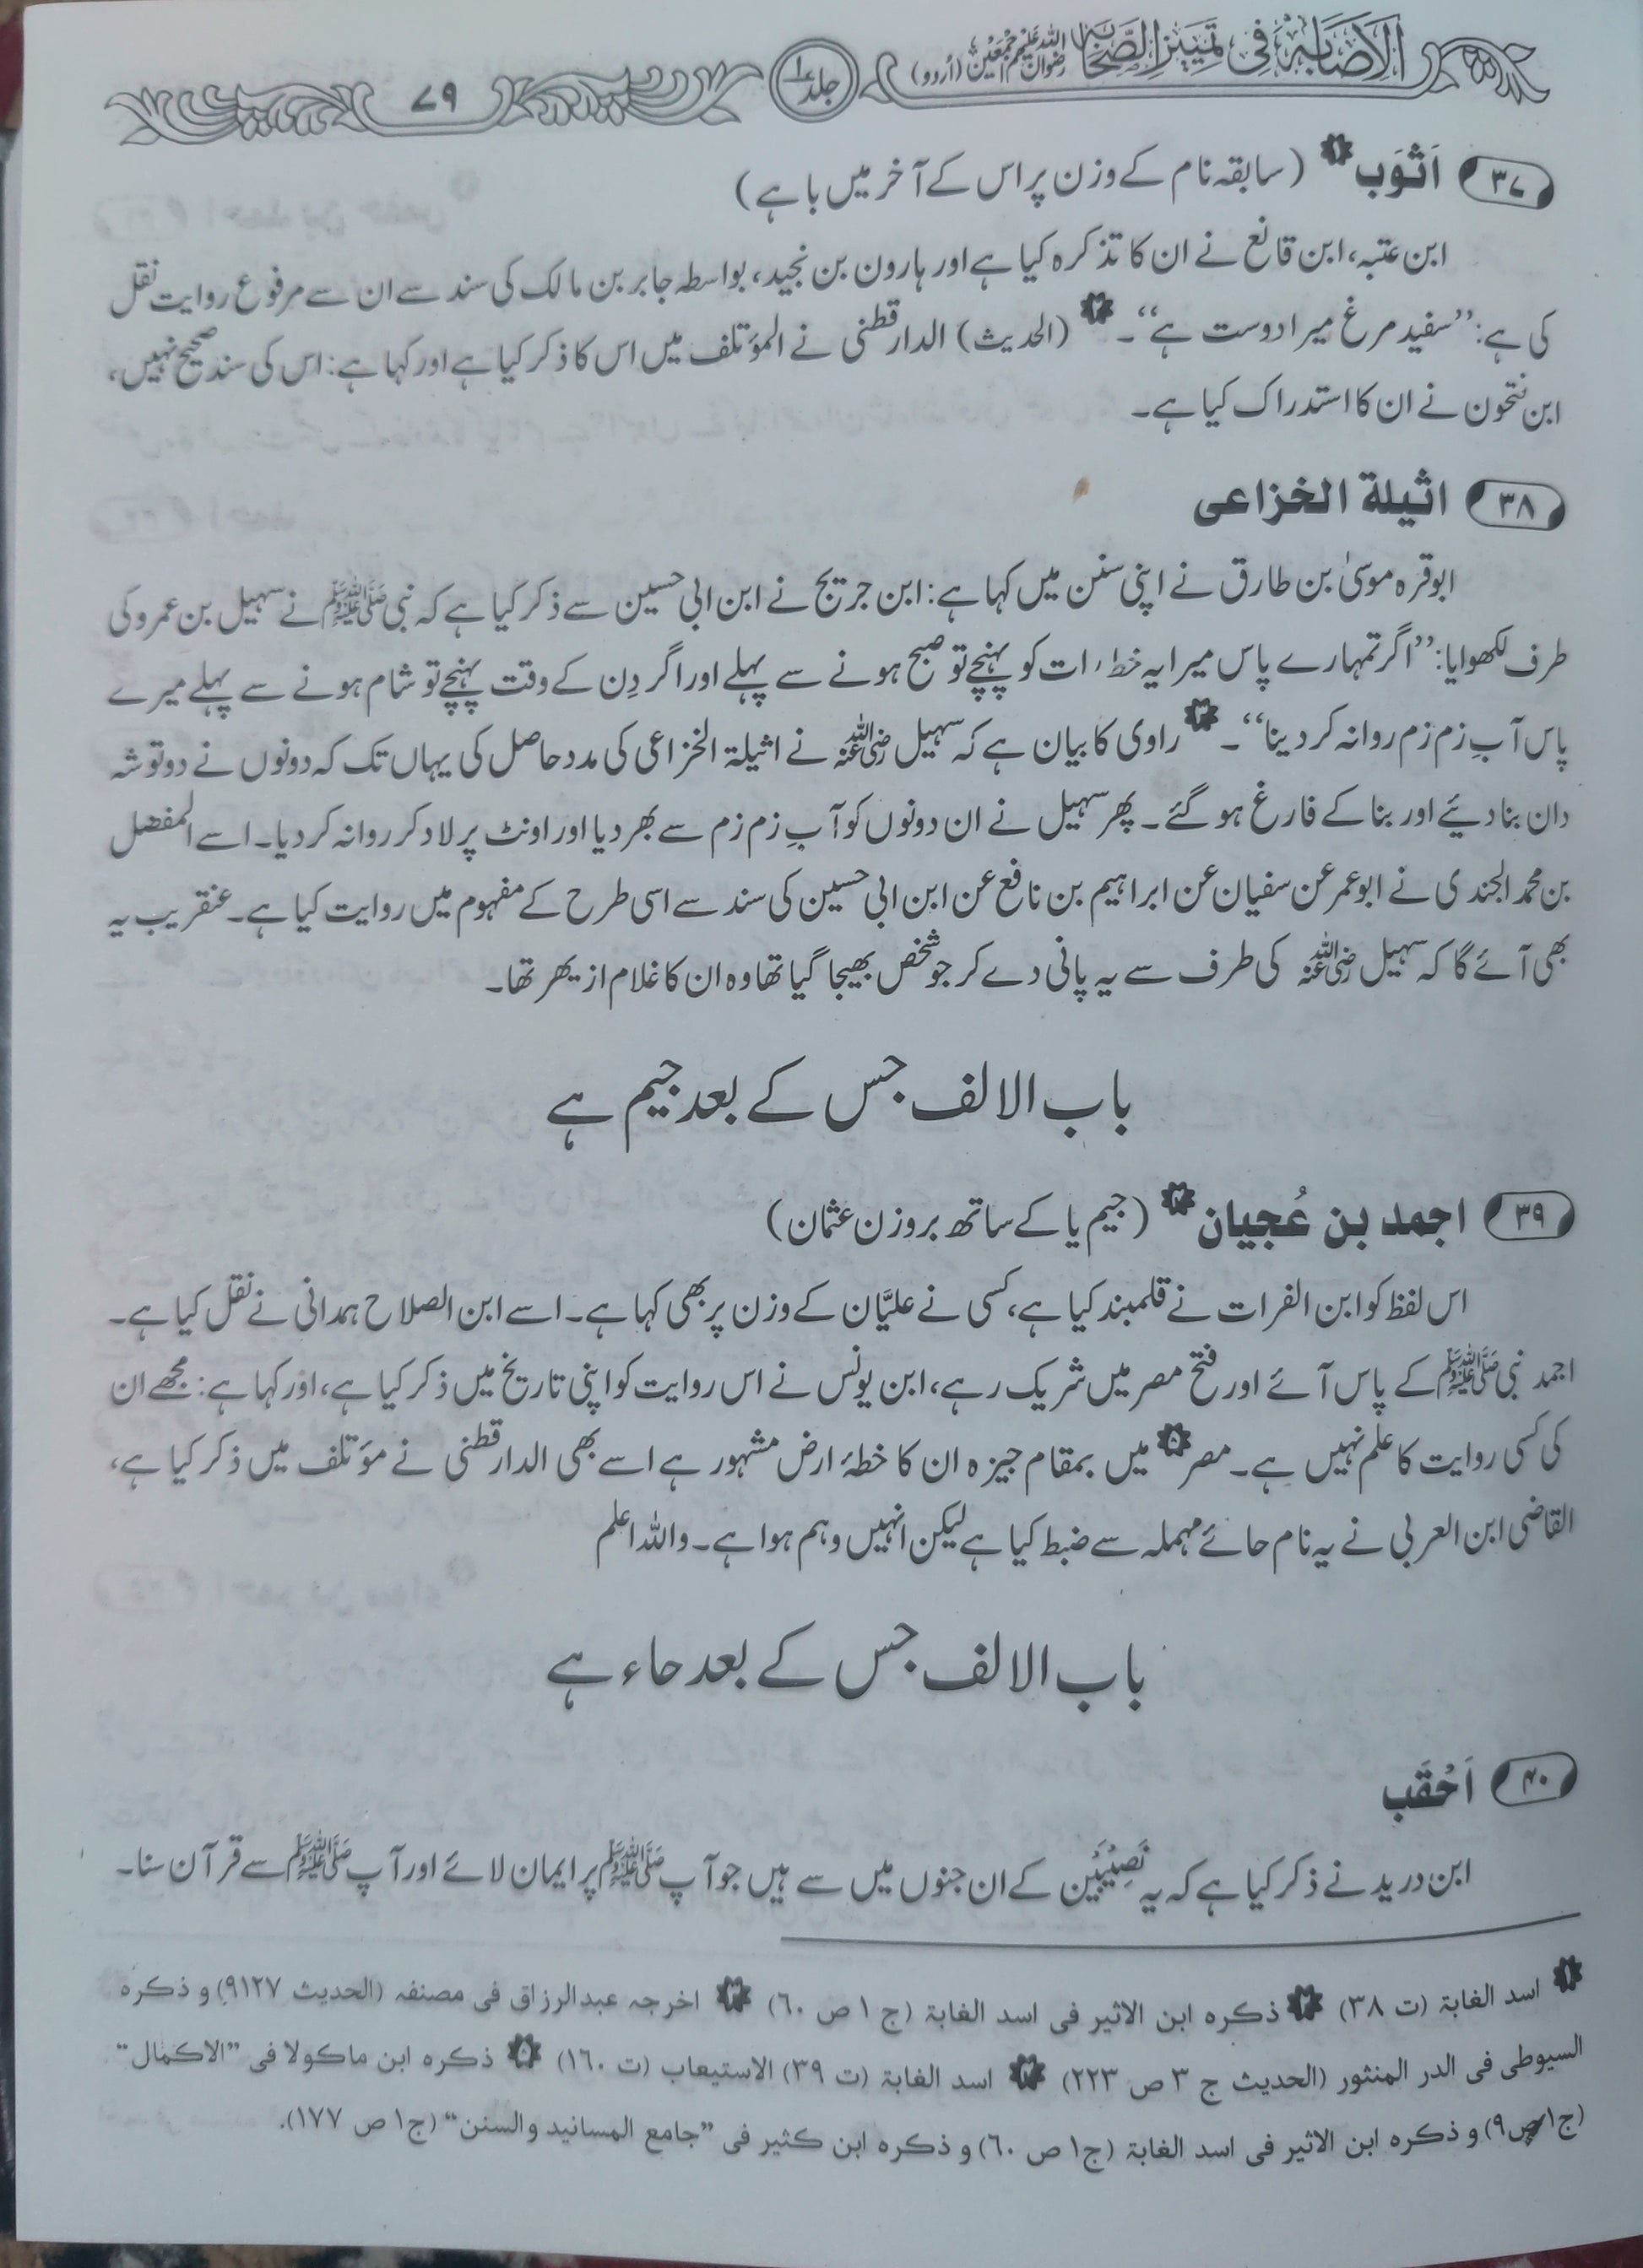 الاصابہ فی تمییز الصحابہ رضوان اللہ علیہم اجمعین (اُردو) جلد ۱ ۷۹
۳۷ اَثوَب ۱ (سابقہ نام کے وزن پر اس کے آخر میں با ہے)
ابن عتبہ، ابن قانع نے ان کا تذکرہ کیا ہے اور ہارون بن نجید، بواسطہ جابر بن مالک کی سند سے ان سے مرفوع روایت نقل
کی ہے: ’’سفید مرغ میرا دوست ہے‘‘۔ ۲ (الحدیث) الدارقطنی نے المؤتلف میں اس کا ذکر کیا ہے اور کہا ہے: اس کی سند صحیح نہیں،
ابن فتحون نے ان کا استدراک کیا ہے۔
۳۸ اثیلة الخزاعی
ابوقرہ موسیٰ بن طارق نے اپنی سنن میں کہا ہے: ابن جریج نے ابن ابی حسین سے ذکر کیا ہے کہ نبی ﷺ نے سہیل بن عمرو کی
طرف لکھوایا: ’’اگر تمہارے پاس میرا یہ خط رات کو پہنچے تو صبح ہونے سے پہلے اور اگر دِن کے وقت پہنچے تو شام ہونے سے پہلے میرے
پاس آبِ زم زم روانہ کر دینا‘‘۔ ۳ راوی کا بیان ہے کہ سہیل رضی اللہ عنہ نے اثیلة الخزاعی کی مدد حاصل کی یہاں تک کہ دونوں نے دو توشہ
دان بنا دیئے اور بنا کے فارغ ہو گئے۔ پھر سہیل نے ان دونوں کو آبِ زم زم سے بھر دیا اور اونٹ پر لاد کر روانہ کر دیا۔ اسے المفضل
بن محمد الجندی نے ابو عمر عن سفیان عن ابراہیم بن نافع عن ابن ابی حسین کی سند سے اسی طرح کے مفہوم میں روایت کیا ہے۔ عنقریب یہ
بھی آئے گا کہ سہیل رضی اللہ عنہ کی طرف سے یہ پانی دے کر جو شخص بھیجا گیا تھا وہ ان کا غلام ازیھر تھا۔
باب الالف جس کے بعد جیم ہے
۳۹ اجمد بن عُجیان ۴ (جیم یا کے ساتھ بروزن عثمان)
اس لفظ کو ابن الفرات نے قلمبند کیا ہے، کسی نے علیَّان کے وزن پر بھی کہا ہے۔ اسے ابن الصلاح ہمدانی نے نقل کیا ہے۔
اجمد نبی ﷺ کے پاس آئے اور فتح مصر میں شریک رہے، ابن یونس نے اس روایت کو اپنی تاریخ میں ذکر کیا ہے، اور کہا ہے: مجھے ان
کی کسی روایت کا علم نہیں ہے۔ مصر ۵ میں بمقام جیزہ ان کا خطۂ ارض مشہور ہے اسے بھی الدارقطنی نے مؤتلف میں ذکر کیا ہے،
القاضی ابن العربی نے یہ نام حائے مہملہ سے ضبط کیا ہے لیکن انہیں وہم ہوا ہے۔ واللہ اعلم
باب الالف جس کے بعد حاء ہے
۴۰ اَحْقَب
ابن درید نے ذکر کیا ہے کہ یہ نَصِیْبَیْن کے ان جنوں میں سے ہیں جو آپ ﷺ پر ایمان لائے اور آپ ﷺ سے قرآن سنا۔
۱ اسد الغابة (ت ۳۸) ۲ ذکرہ ابن الاثیر فی اسد الغابة (ج ۱ ص ۶۰) ۳ اخرجہ عبدالرزاق فی مصنفہ (الحدیث ۹۱۲۷) و ذکرہ
السیوطی فی الدر المنثور (الحدیث ج ۳ ص ۲۲۳) ۴ اسد الغابة (ت ۳۹) الاستیعاب (ت ۱۶۰) ۵ ذکرہ ابن ماکولا فی ”الاکمال“
(ج۱ ص۹) و ذکرہ ابن الاثیر فی اسد الغابة (ج۱ ص ۶۰) و ذکرہ ابن کثیر فی ”جامع المسانید والسنن“ (ج۱ ص ۱۷۷)۔